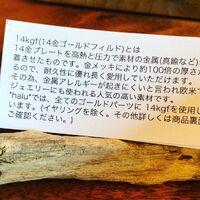 14kgf(14金ゴールドフィルド)とは
14金プレートを高熱と圧力で素材の金属(真鍮など)
着させたものです。金メッキにより約100倍の厚さが
るので、耐久性に優れ長く愛用していただけます。
その為、金属アレルギーが起きにくいと言われ欧米で
ジュエリーにも使われる人気の高い素材です。
"halu"では、全てのゴールドパーツに 14kgfを使用し
す。(イヤリングを除く。その他詳しくは商品裏面
ご確認ください。)